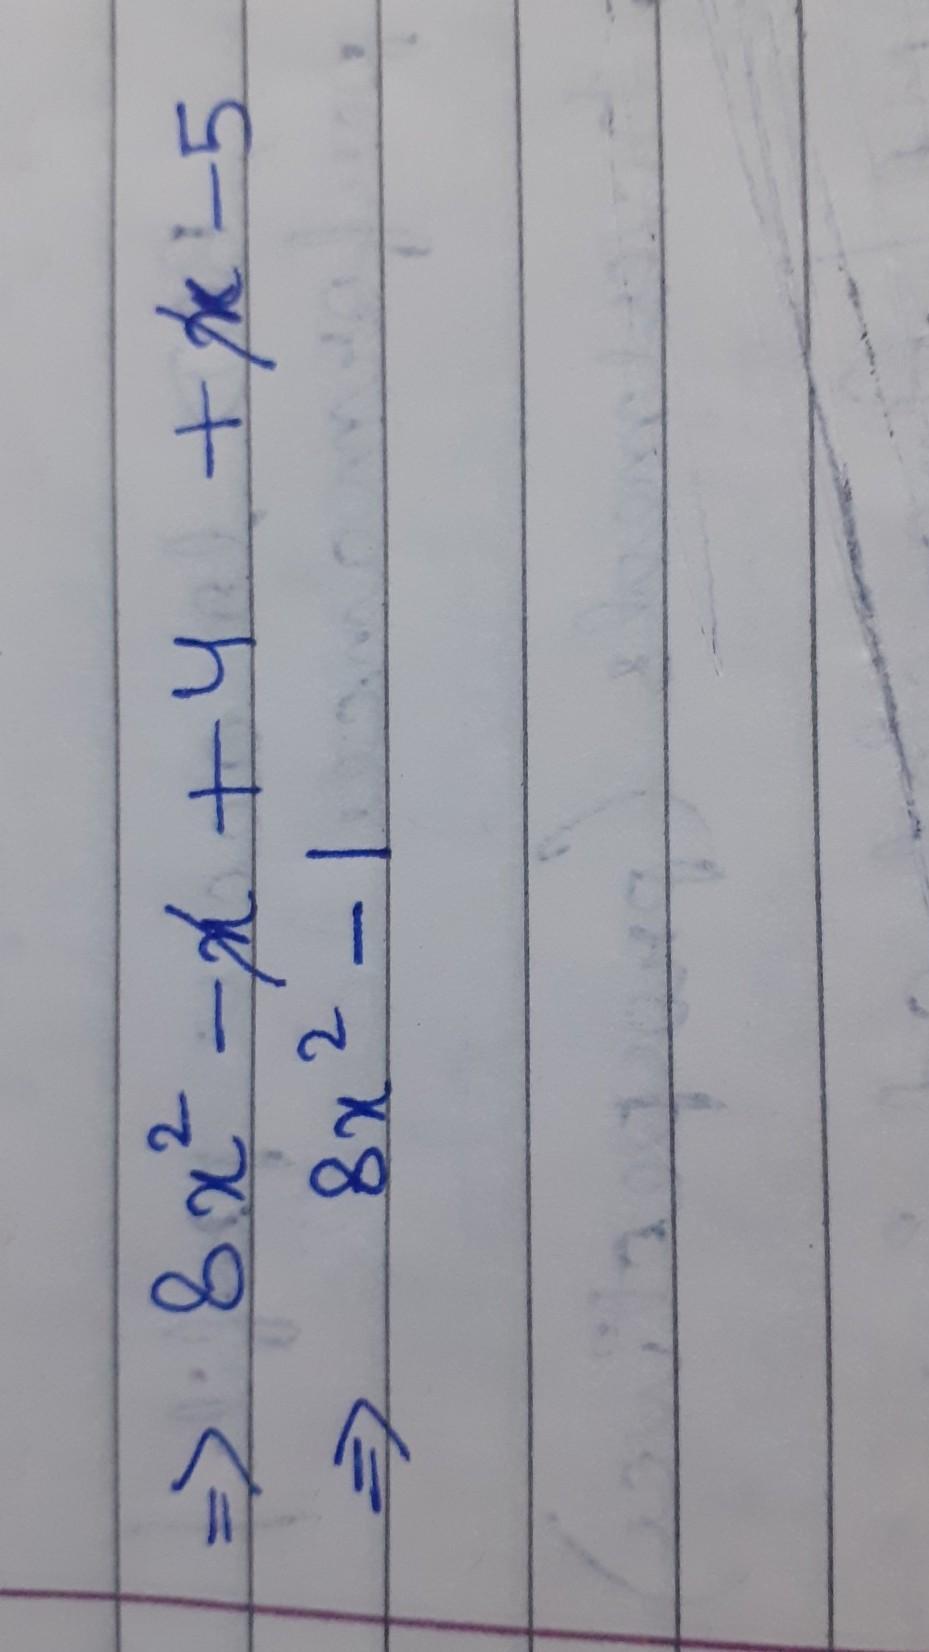 => 8x² - x + 4 + x - 5
=> 8x² - 1